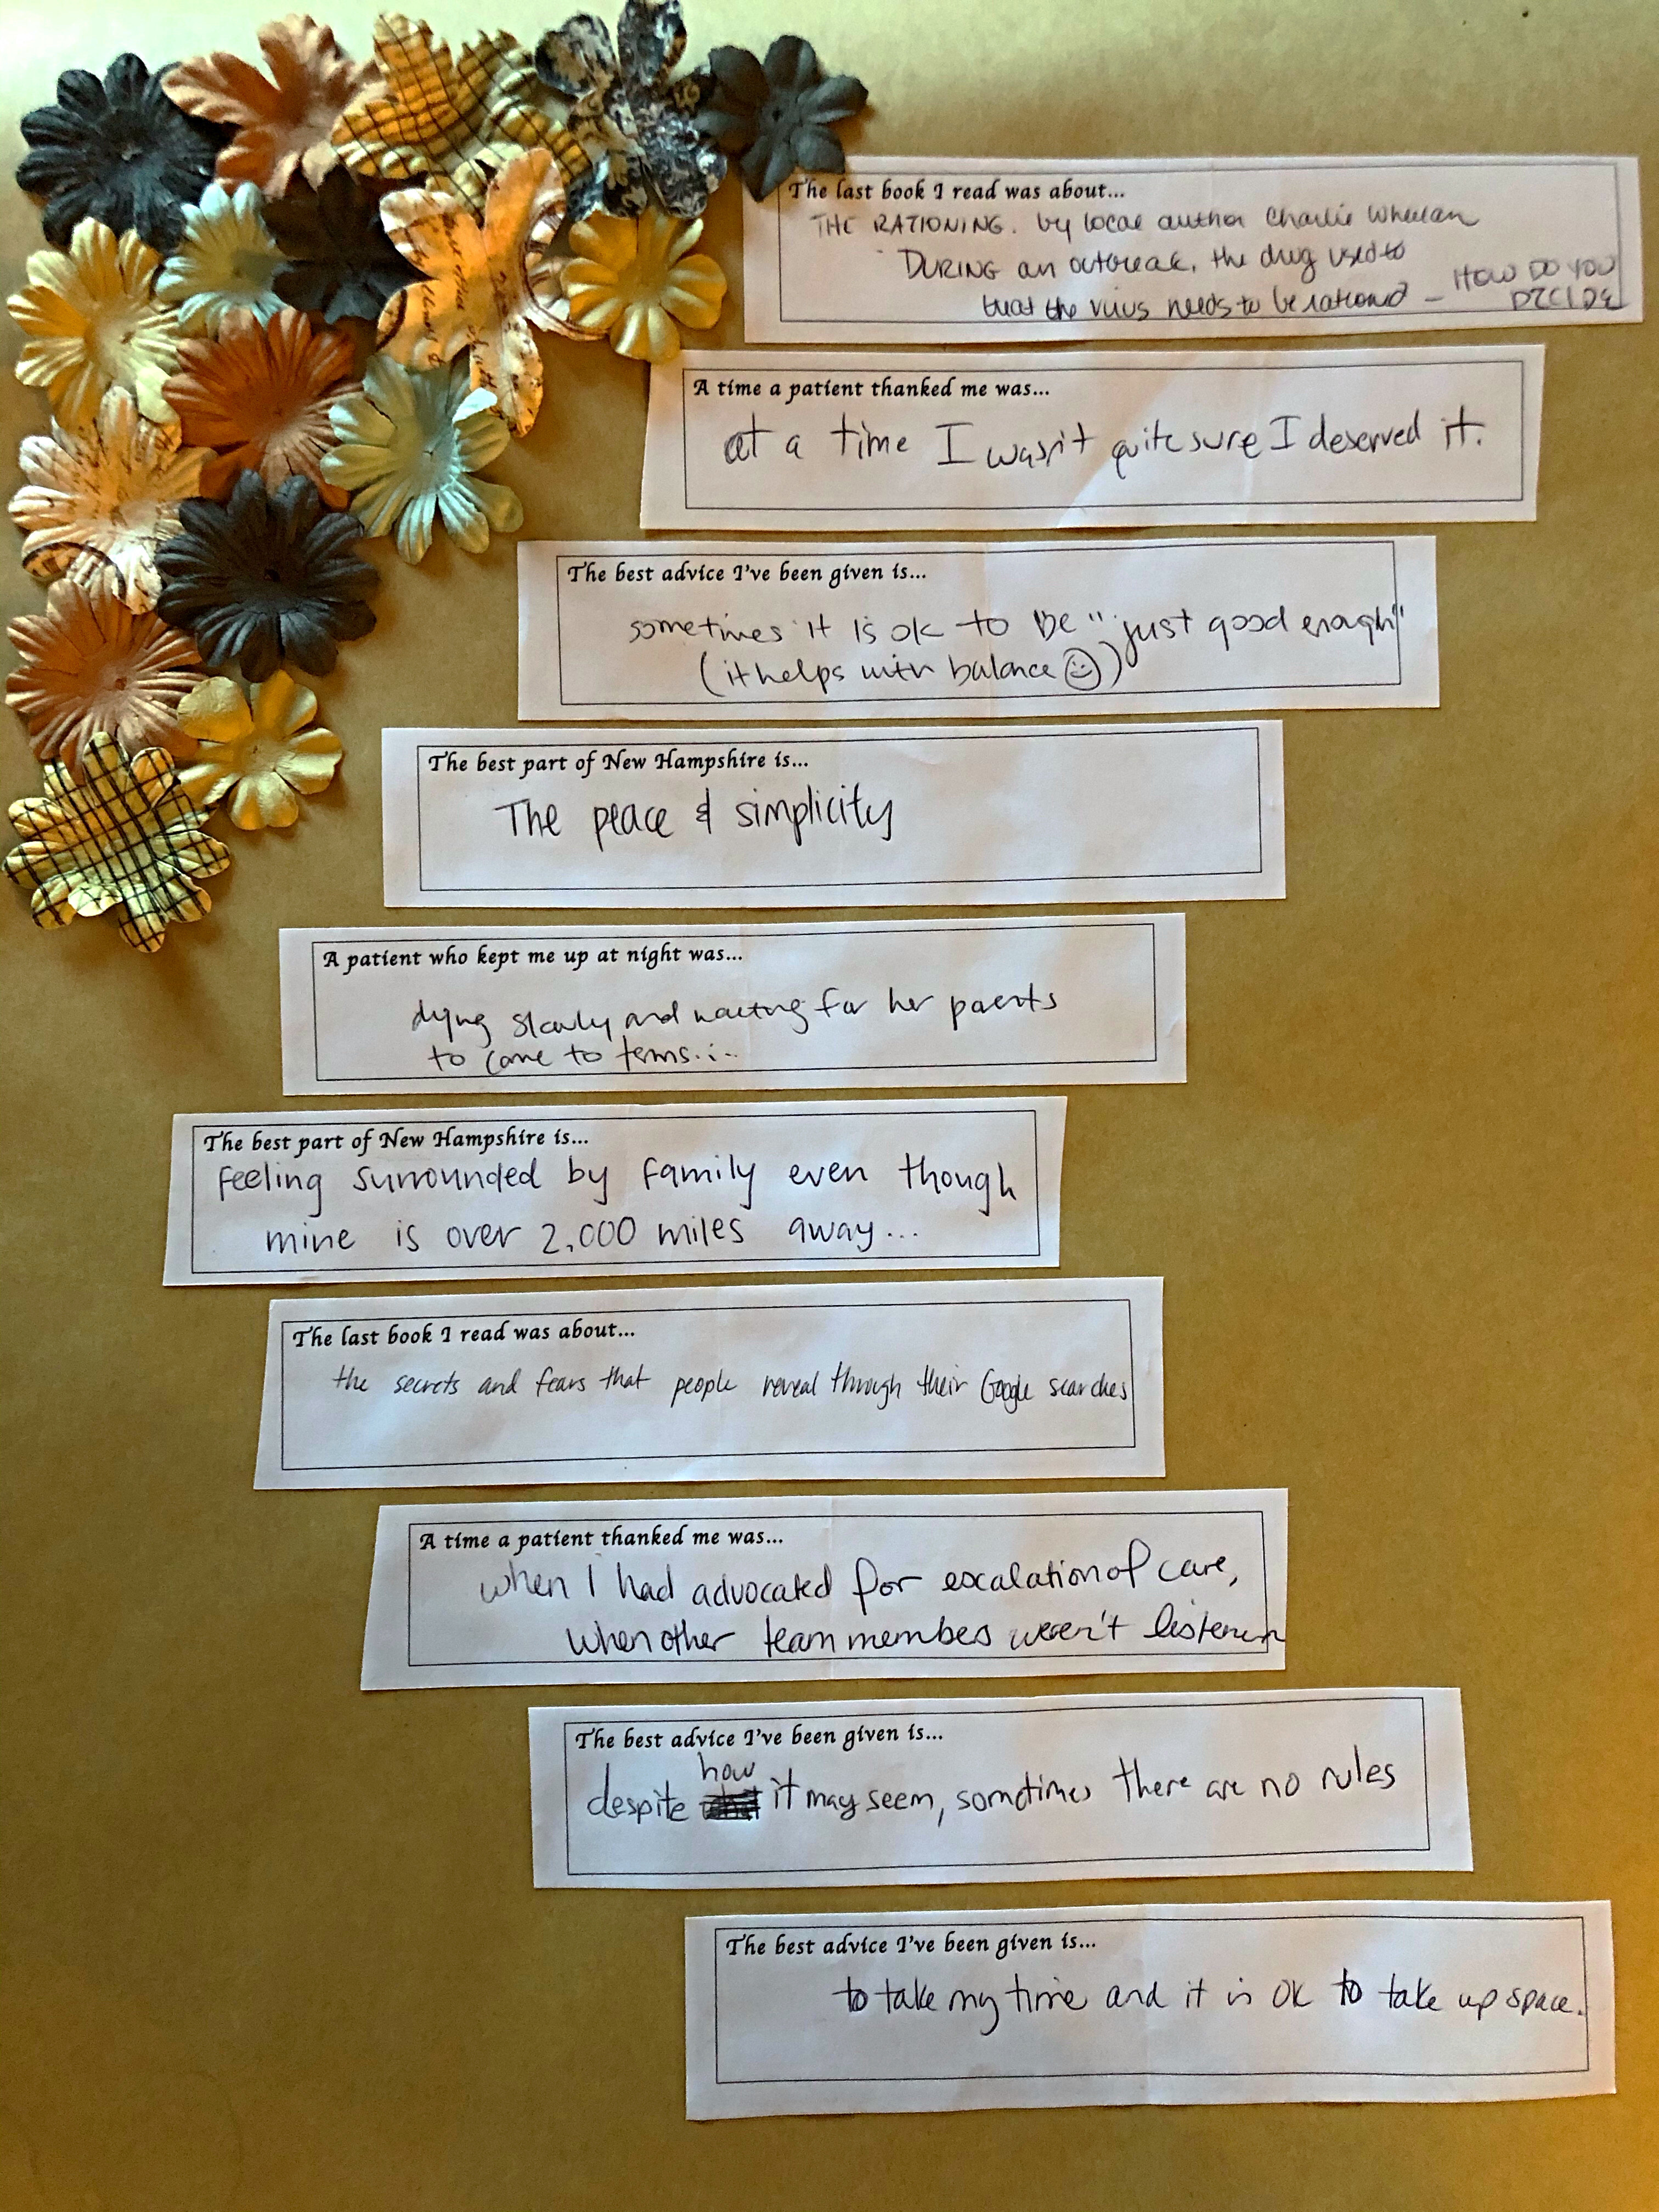 The last book I read was about...
THE RATIONING. by local author Charlie Wheelan
DURING an outbreak, the drug used to
treat the virus needs to be rationed – HOW DO YOU
DECIDE
A time a patient thanked me was...
at a time I wasn't quite sure I deserved it.
The best advice I've been given is...
sometimes it is ok to be "just good enough"
(it helps with balance ☺)
The best part of New Hampshire is...
The peace & simplicity
A patient who kept me up at night was...
dying slowly and waiting for her parents
to come to terms...
The best part of New Hampshire is...
Feeling surrounded by family even though
mine is over 2,000 miles away...
The last book I read was about...
the secrets and fears that people reveal through their Google searches
A time a patient thanked me was...
when I had advocated for escalation of care,
when other team members weren't listenin
The best advice I've been given is...
how
despite it may seem, sometimes there are no rules
The best advice I've been given is...
to take my time and it is OK to take up space.